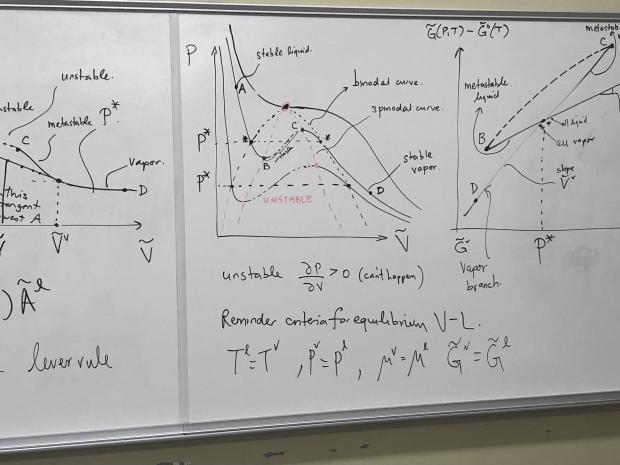 unstable.
stable
C
metastable
P*
vapor.
D
this
tangent
A
Ṽᵛ
Ṽ
) Ãˡ
lever rule
P
stable liquid.
A
binodal curve.
spinodal curve.
P*
*
C
*
B
unstable
stable
vapor.
P*
D
UNSTABLE
Ṽ
unstable ∂P/∂V > 0 (can't happen)
Reminder criteria for equilibrium V-L.
Tˡ = Tᵛ , Pᵛ = Pˡ , μᵛ = μˡ G̃ᵛ = G̃ˡ
G̃(P,T) - G̃°(T)
metastab
C
metastable
liquid
B
all liquid
all vapor
slope
Ṽᵛ
D
G̃ᵛ
P*
Vapor
branch.